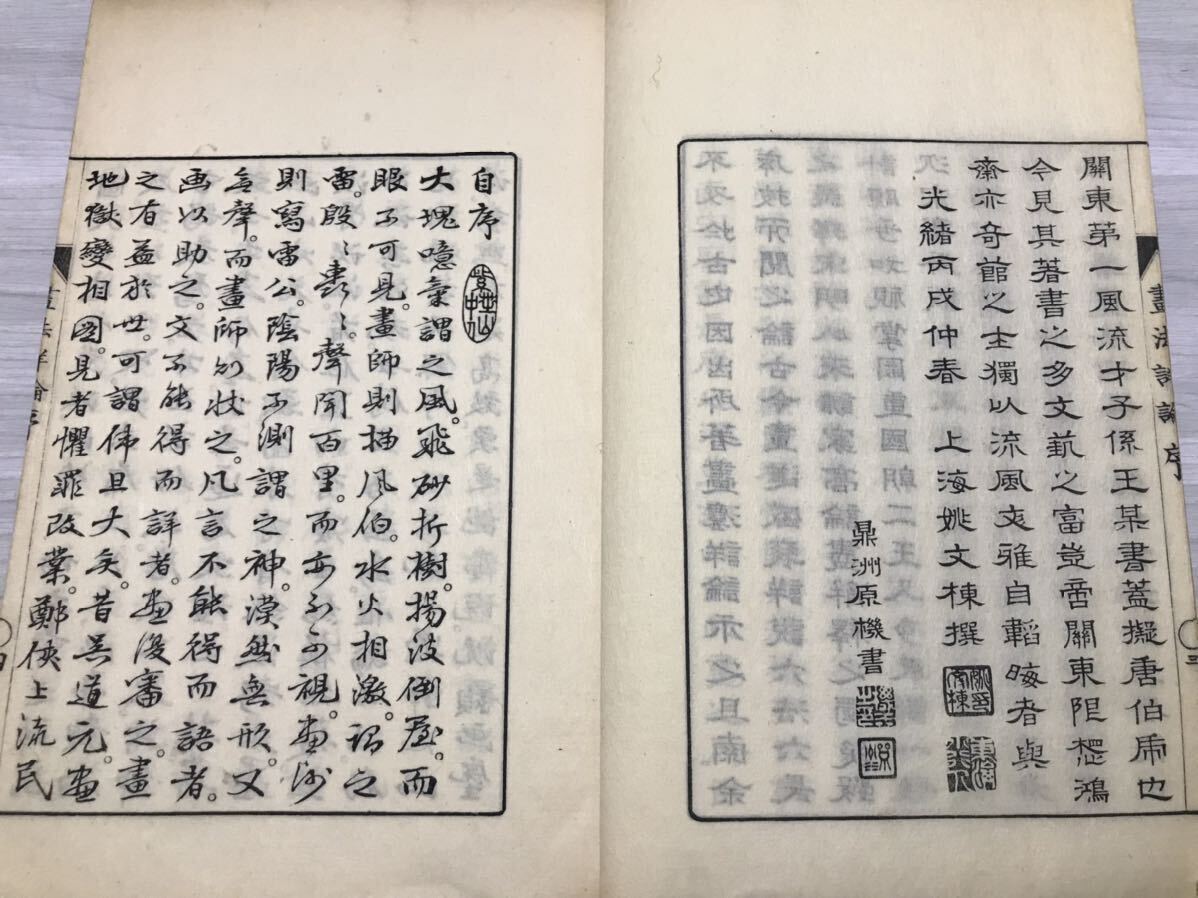 關東第一風流才子係王某書蓋擬唐伯虎也
今見其著書之多文藝之富豈啻關東阻想鴻
齋亦奇館之士獨以流風文雅自韜晦者與
光緒丙戌仲春 上海姚文棟撰
鼎洲原機書
畫法詳論序
三
自序
大塊噫氣謂之風。飛砂折樹。揚波倒屋。而
眼不可見。畫師則描風伯。水火相激。謂之
雷。殷〻轟〻。聲聞百里。而亦不可視。畫師
則寫雷公。陰陽不測謂之神。漠然無形。又
無聲。而畫師別狀之。凡言不能得而語者。
画以助之。文不能得而詳者。畫復審之。畫
之有益於世。可謂偉且大矣。昔吳道元。畫
地獄變相圖。見者懼罪改業。鄭俠上流民
畫法詳論序
四